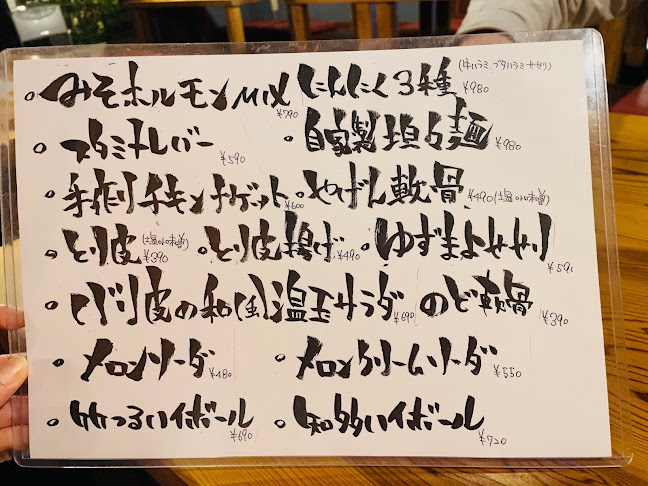 。みそホルモンMIX ¥790 にんにく3種 (牛ハラミ、ブタハラミ、セセリ) ¥980
。スタミナレバー ¥590 。自家製坦々麺 ¥980
。手作りチキンナゲット ¥600 。やげん軟骨 ¥490 (塩or味噌)
。とり皮 (塩or味噌) ¥390 。とり皮揚げ ¥490 。ゆずまよセセリ ¥590
。パリパリ皮の和風温玉サラダ ¥690 のど軟骨 ¥390
。メロンソーダ ¥480 。メロンクリームソーダ ¥550
。竹つるハイボール ¥690 。知多ハイボール ¥720